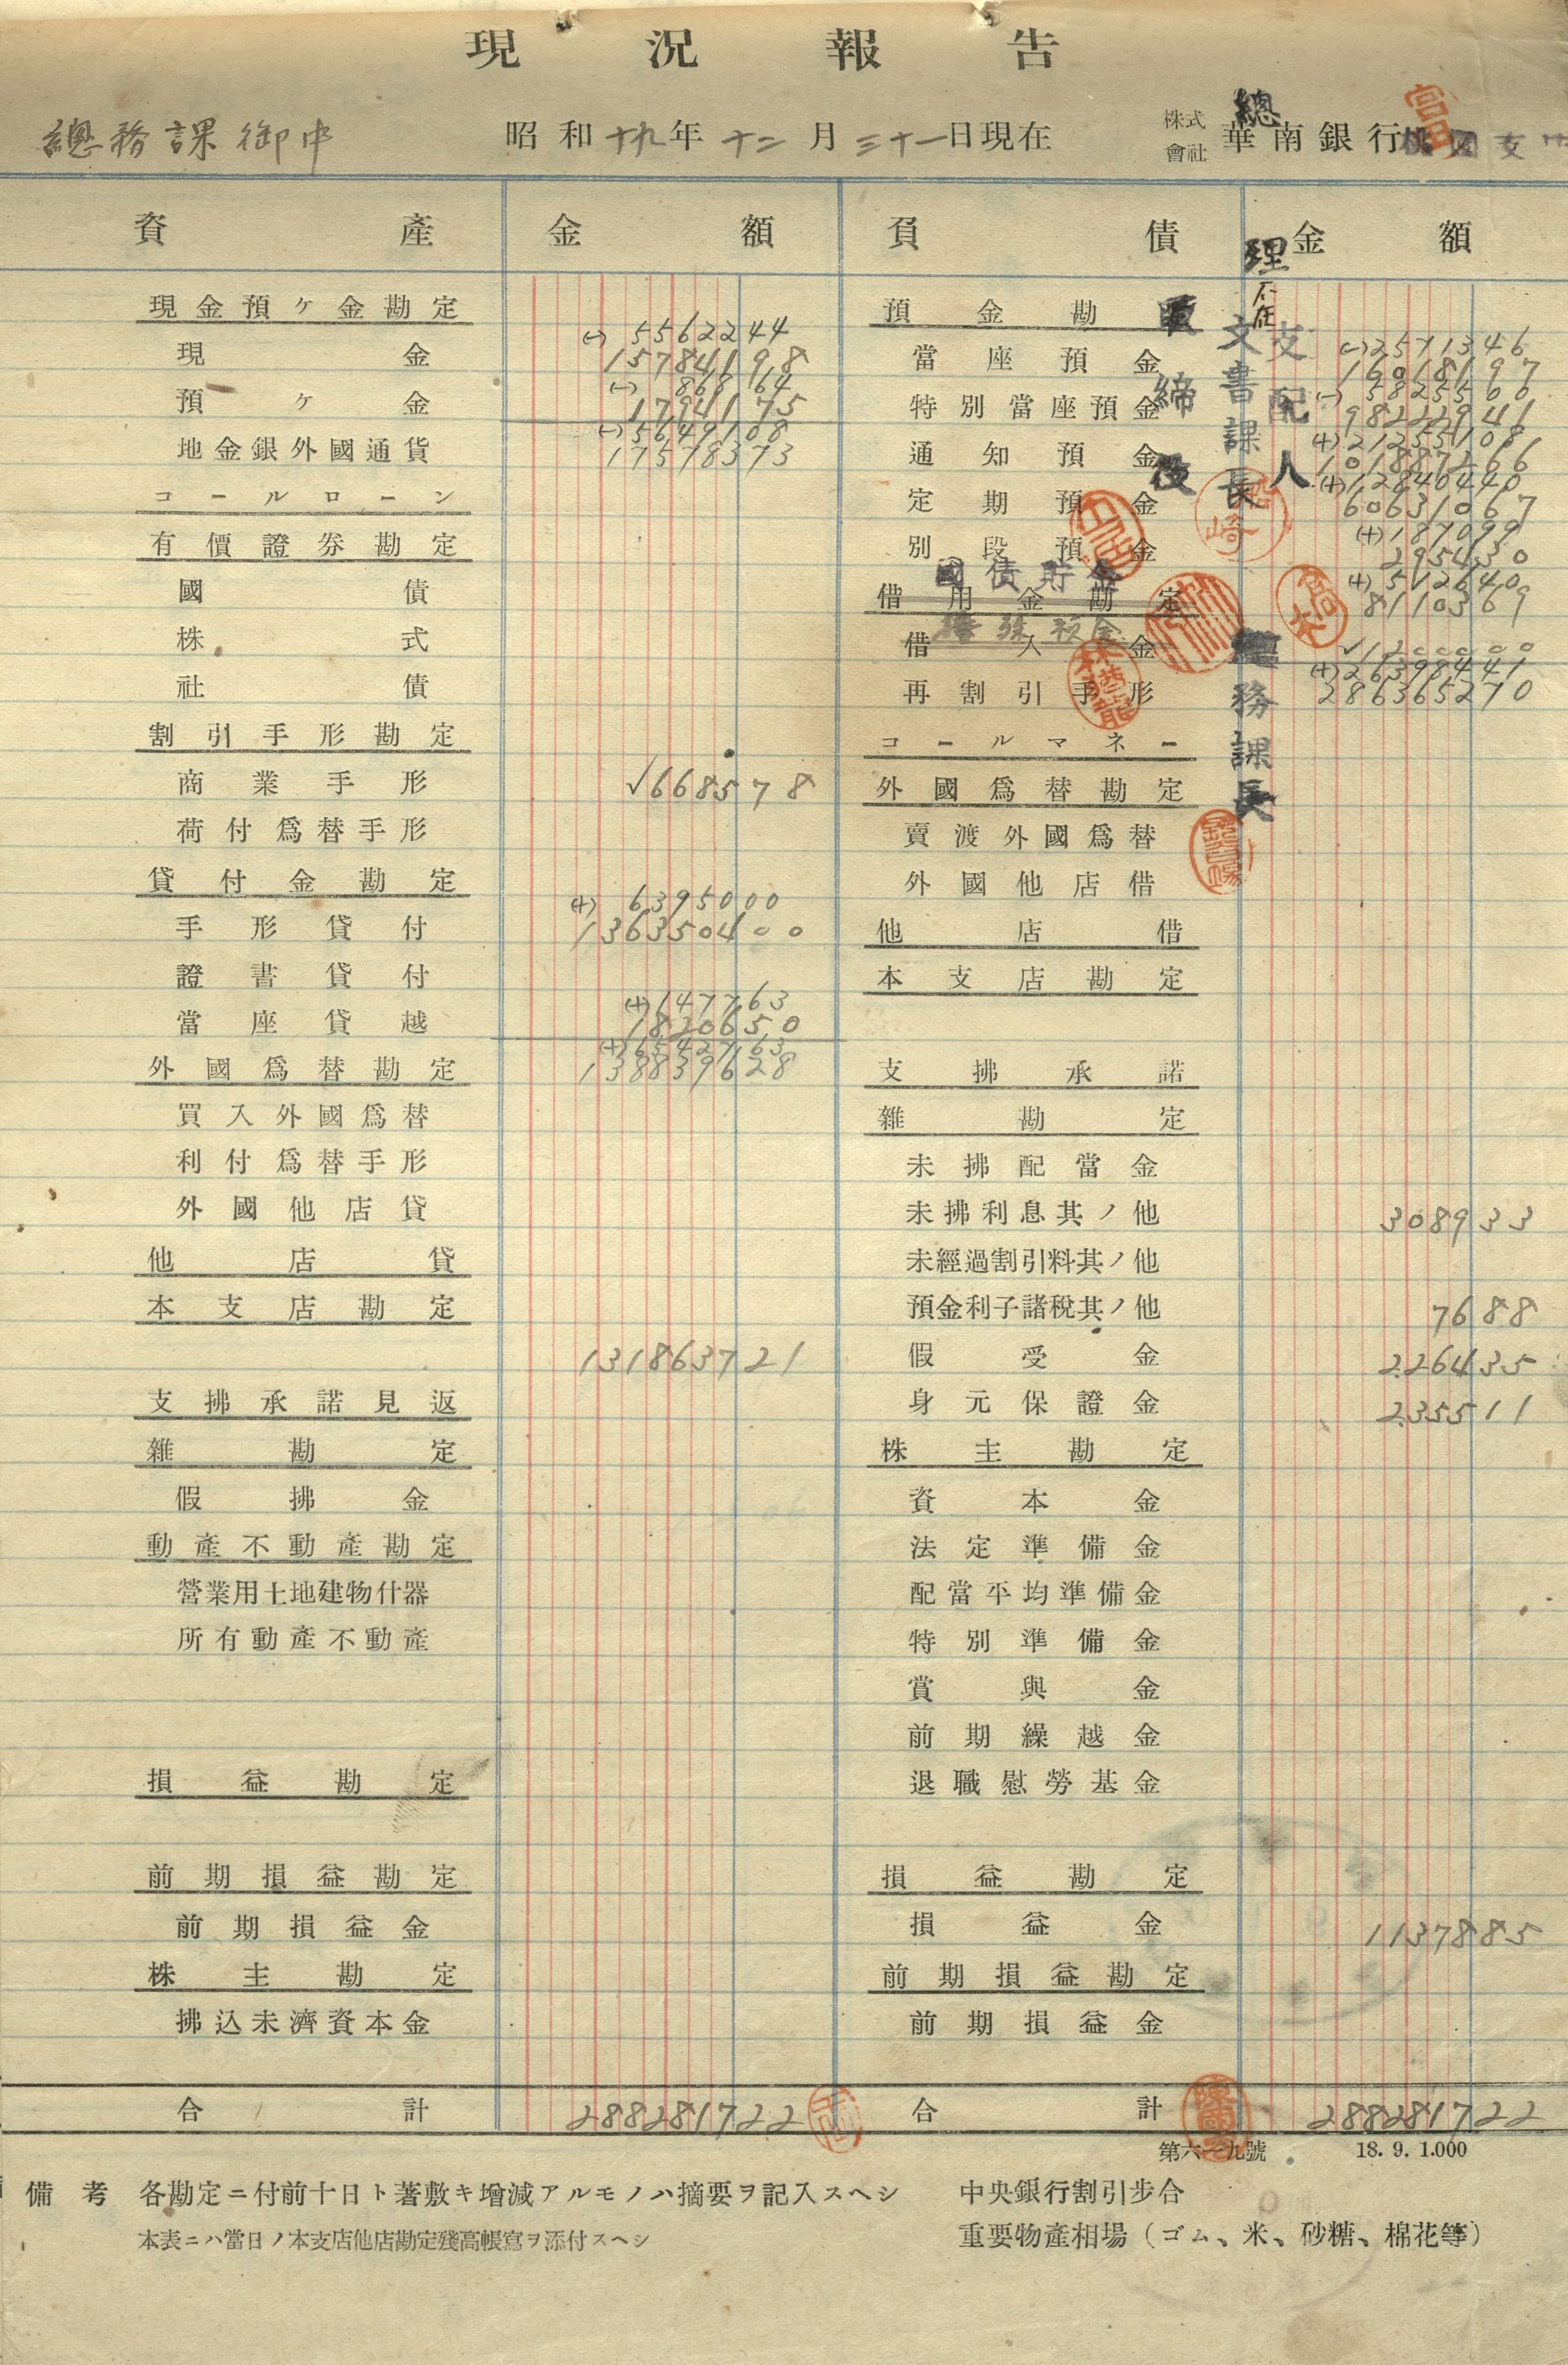 現況報告
總務課御中 昭和十九年十二月三十一日現在 株式會社 華南銀行桃園支
資產 金額 負債 金額
現金預ケ金勘定
(-) 5562244
現金 15784198
(-) 868 64
預ケ金 17941 75
(-) 5649108
地金銀外國通貨 17578373
コールローン
有價證券勘定
國債
株式
社債
割引手形勘定
商業手形 √668578
荷付爲替手形
貸付金勘定
(+) 6395000
手形貸付 136350400
證書貸付
(+) 147763
當座貸越 1820650
(+) 6542763
外國爲替勘定 138839628
買入外國爲替
利付爲替手形
外國他店貸
他店貸
本支店勘定
131863721
支拂承諾見返
雜勘定
假拂金
動產不動產勘定
營業用土地建物什器
所有動產不動產
損益勘定
前期損益勘定
前期損益金
株主勘定
拂込未濟資本金
合計 288281722
預金勘
(-) 2571346
當座預金 16018197
(-) 5825500
特別當座預金 98222941
(+) 21255108
通知預金 101887266
(+) 12840440
定期預金 60631067
(+) 187099
別段預金 295430
國債貯金 (+) 5126400
借用金勘定 8110369
特殊預金
借入金 √1200000
(+) 26398441
再割引手形 286365270
コールマネー
外國爲替勘定
賣渡外國爲替
外國他店借
他店借
本支店勘定
支拂承諾
雜勘定
未拂配當金
未拂利息其ノ他 308933
未經過割引料其ノ他
預金利子諸稅其ノ他 7688
假受金 226435
身元保證金 235511
株主勘定
資本金
法定準備金
配當平均準備金
特別準備金
賞與金
前期繰越金
退職慰勞基金
損益勘定
損益金 1137885
前期損益勘定
前期損益金
合計 288281722
總理
不在
取締役
文書課長
支配人
務課長
第六一九號 18. 9. 1.000
備考 各勘定ニ付前十日ト著敷キ增減アルモノハ摘要ヲ記入スヘシ
本表ニハ當日ノ本支店他店勘定殘高帳寫ヲ添付スヘシ
中央銀行割引步合
重要物產相場(ゴム、米、砂糖、棉花等)